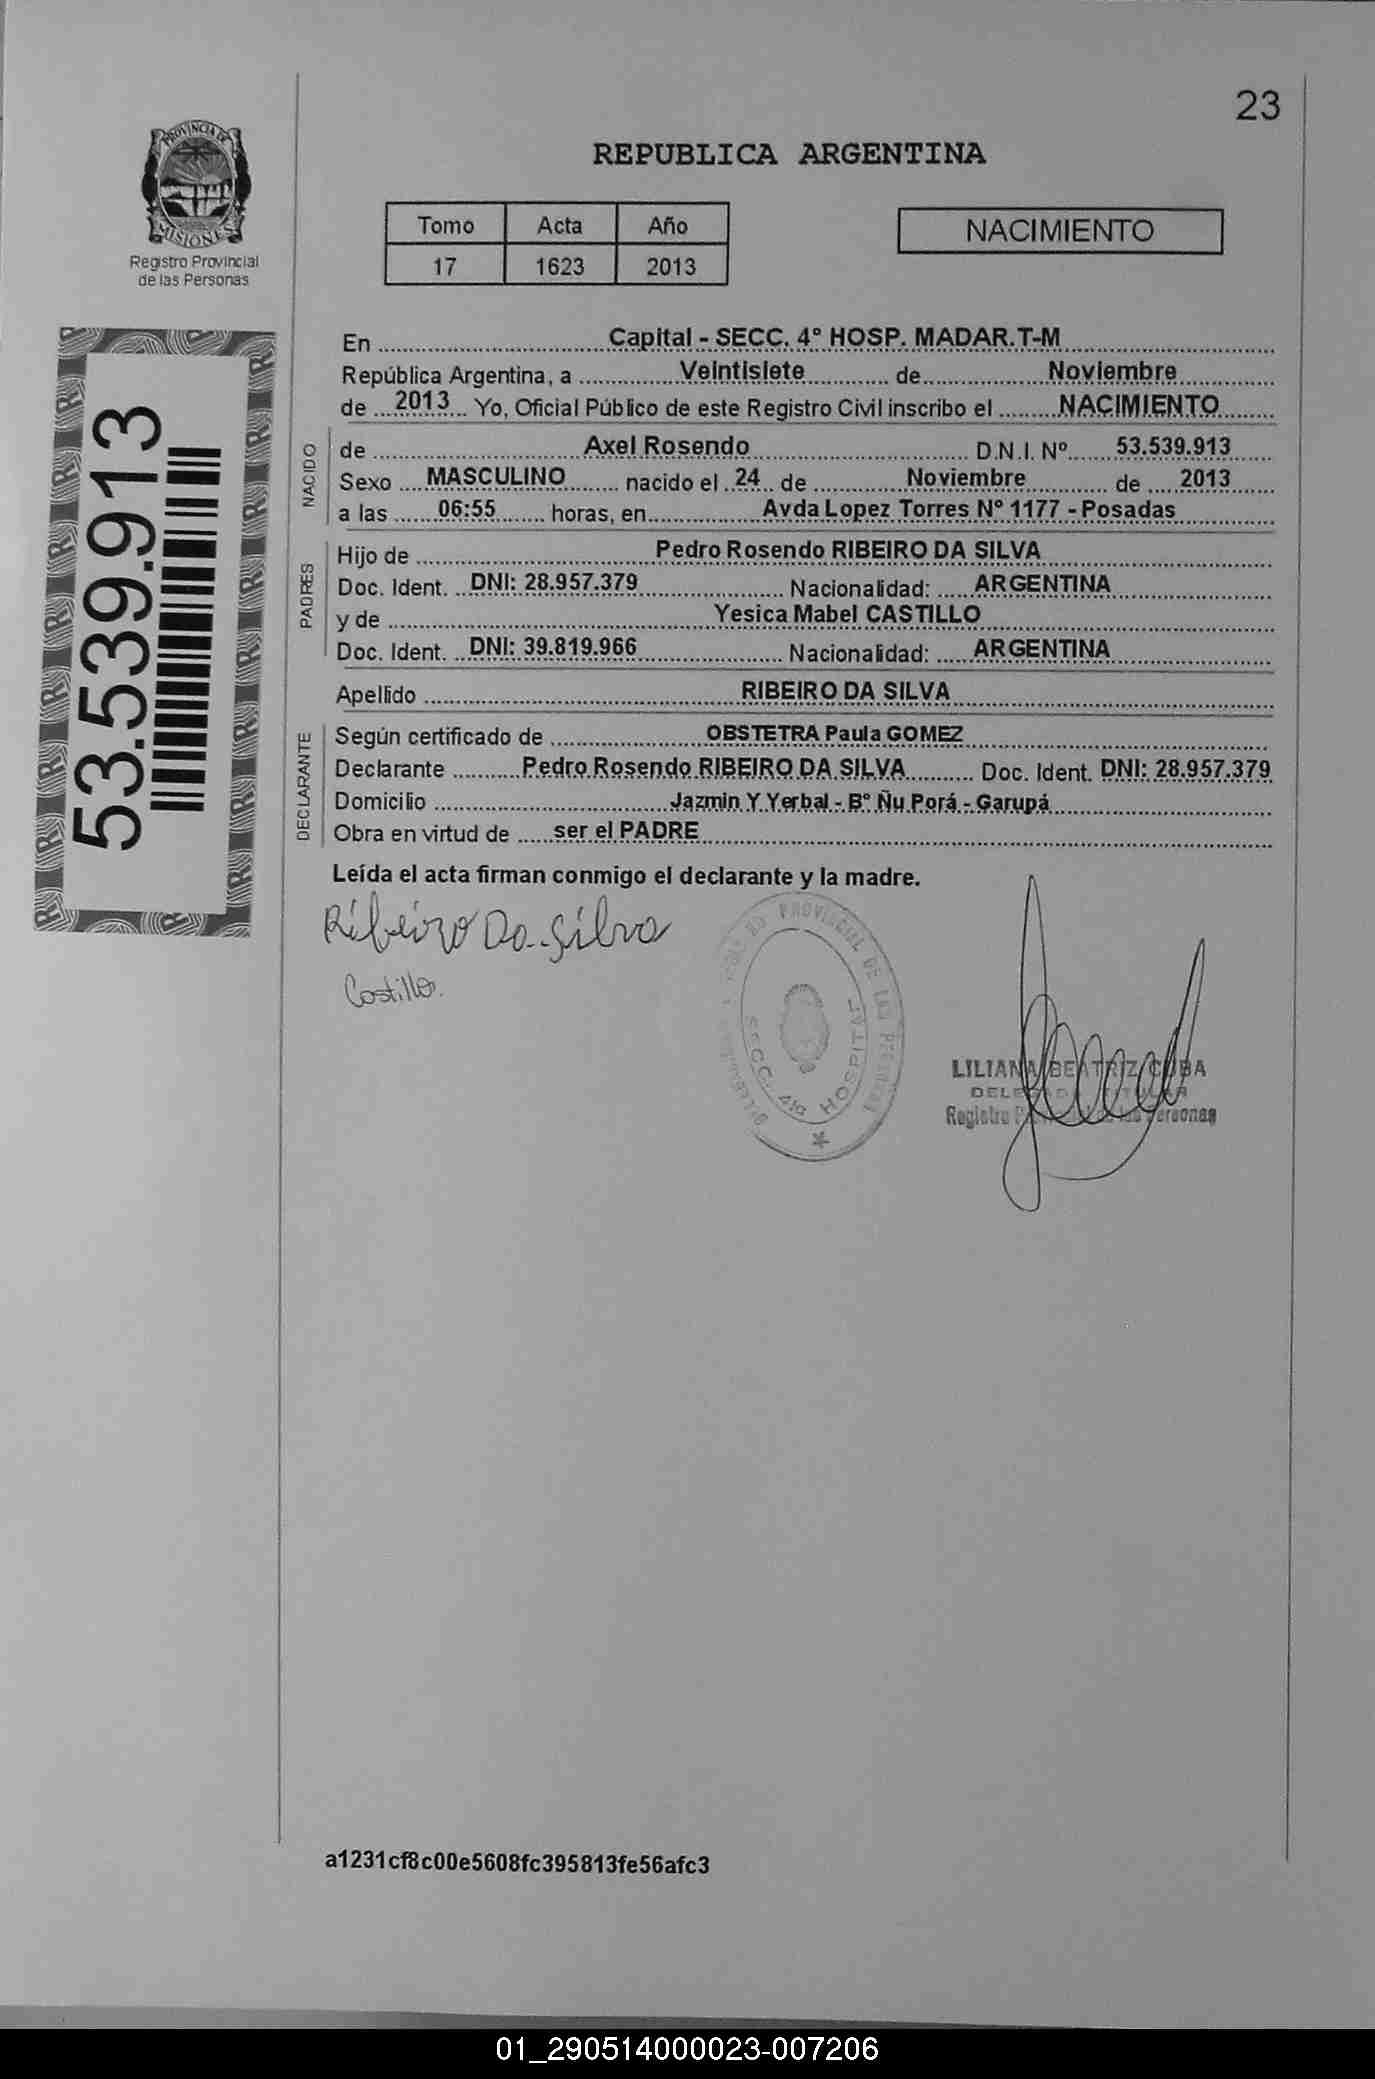 23
PROVINCIA DE
MISIONES
Registro Provincial
de las Personas
REPUBLICA ARGENTINA
Tomo Acta Año
17 1623 2013
NACIMIENTO
53.539.913
En Capital - SECC. 4º HOSP. MADAR.T-M
República Argentina, a Veintisiete de Noviembre
de 2013 Yo, Oficial Público de este Registro Civil inscribo el NACIMIENTO
NACIDO
de Axel Rosendo D.N.I. Nº 53.539.913
Sexo MASCULINO nacido el 24 de Noviembre de 2013
a las 06:55 horas, en Avda Lopez Torres Nº 1177 - Posadas
PADRES
Hijo de Pedro Rosendo RIBEIRO DA SILVA
Doc. Ident. DNI: 28.957.379 Nacionalidad: ARGENTINA
y de Yesica Mabel CASTILLO
Doc. Ident. DNI: 39.819.966 Nacionalidad: ARGENTINA
Apellido RIBEIRO DA SILVA
DECLARANTE
Según certificado de OBSTETRA Paula GOMEZ
Declarante Pedro Rosendo RIBEIRO DA SILVA Doc. Ident. DNI: 28.957.379
Domicilio Jazmin Y Yerbal - Bº Ñu Porá - Garupá
Obra en virtud de ser el PADRE
Leída el acta firman conmigo el declarante y la madre.
Ribeiro Da Silva
Castillo
PROVINCIAL DE LAS PERSONAS
SECC. 4ta HOSPITAL
LILIANA BEATRIZ CUBA
DELEGADA TITULAR
Registro Provincial de las Personas
a1231cf8c00e5608fc395813fe56afc3
01_290514000023-007206